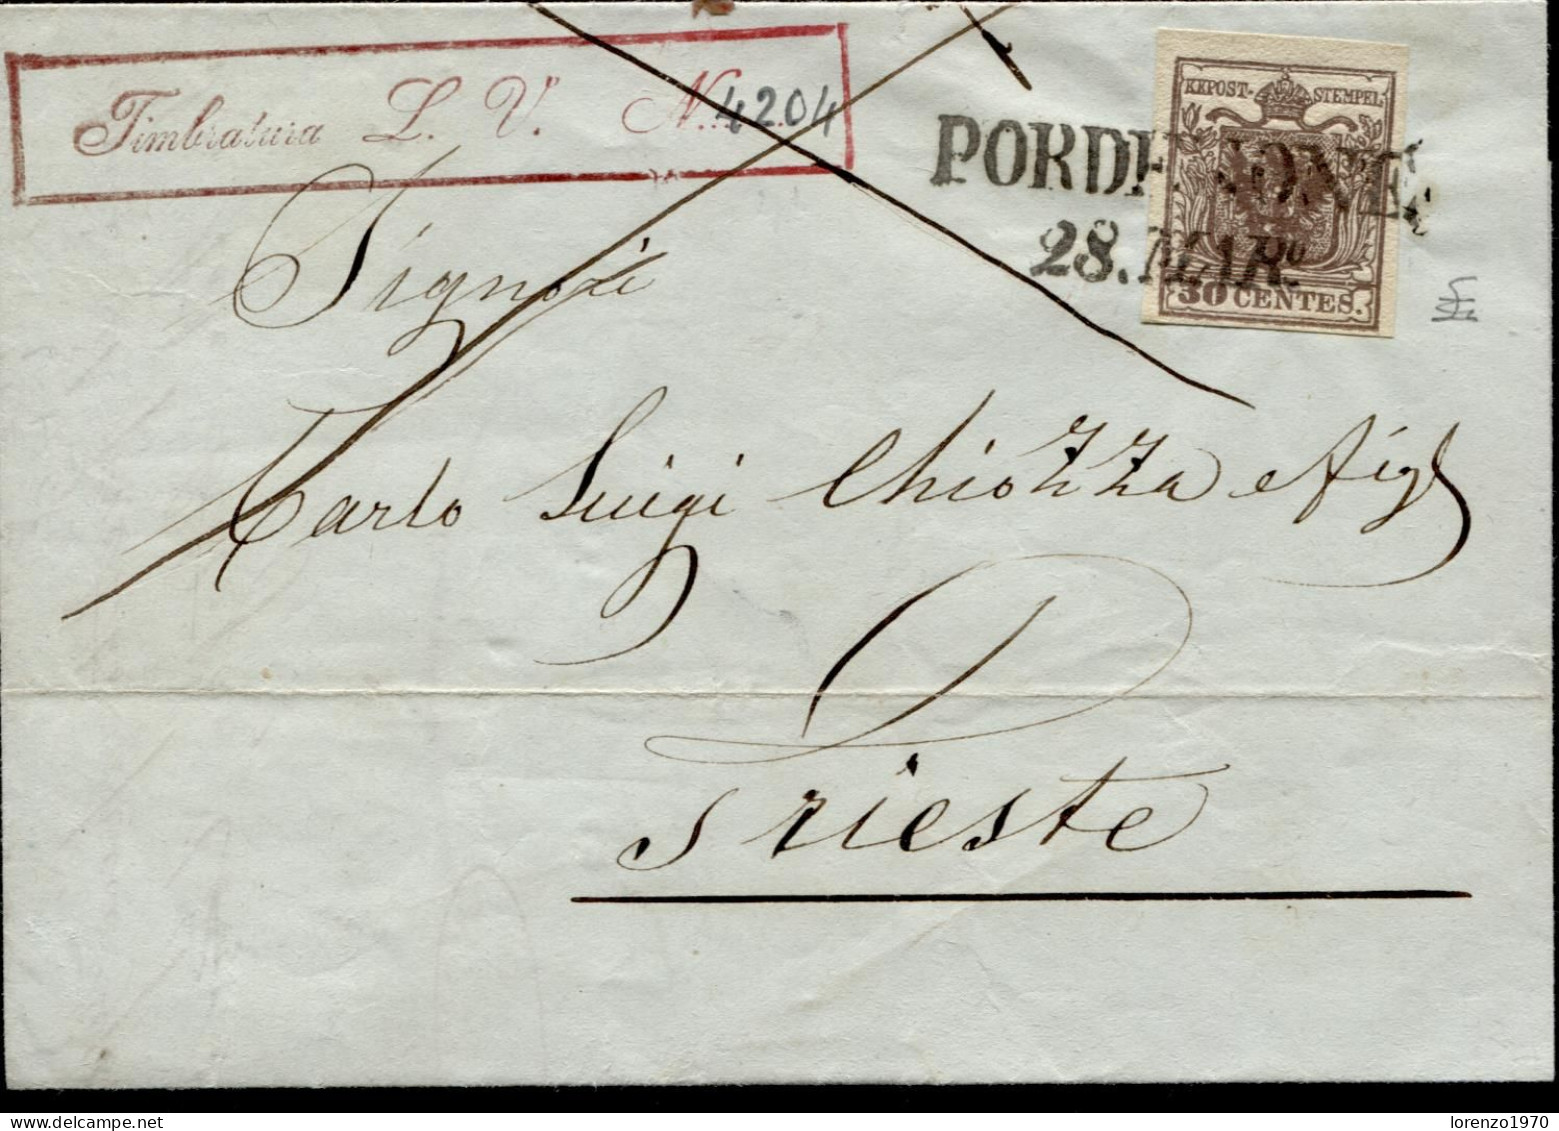 Timbratura L. V. N. 4204
KKPOST-STEMPEL
PORDENONE.
28. MAR.
30 CENTES.
Signori
Carlo Luigi Chiozza e figl
Trieste
lorenzo1970